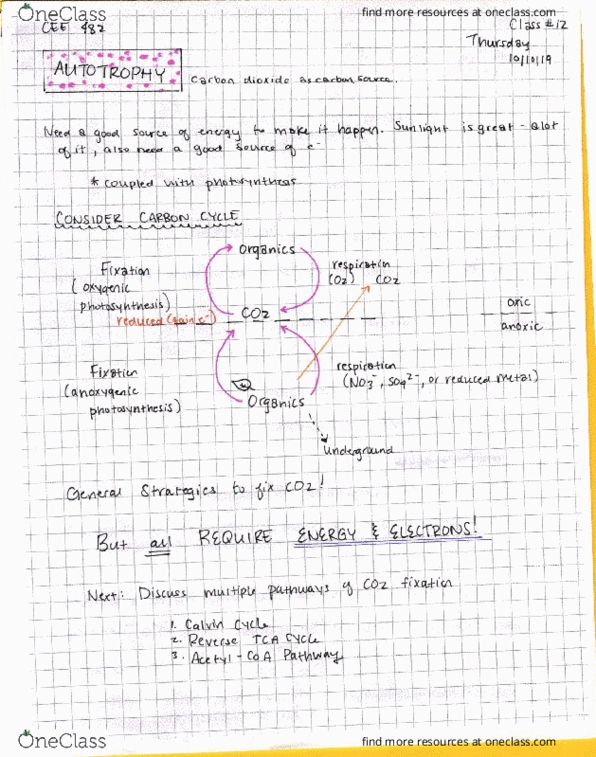 OneClass
find more resources at oneclass.com
CEE 482
Class #12
Thursday
10/10/19
AUTOTROPHY
Carbon dioxide as carbon source.
Need a good source of energy to make it happen. Sunlight is great - alot
of it, also need a good source of e-
* coupled with photosynthesis
CONSIDER CARBON CYCLE
Organics
Fixation
(oxygenic
photosynthesis)
respiration
(O2) CO2
reduced (gain e-)
CO2
oxic
anoxic
Fixation
(anoxygenic
photosynthesis)
respiration
(NO3-, SO42-, or reduced metal)
Organics
Underground
General Strategies to fix CO2!
But all REQUIRE ENERGY & ELECTRONS!
Next: Discuss multiple pathways of CO2 fixation
1. Calvin Cycle
2. Reverse TCA Cycle
3. Acetyl-CoA Pathway
OneClass
find more resources at oneclass.com